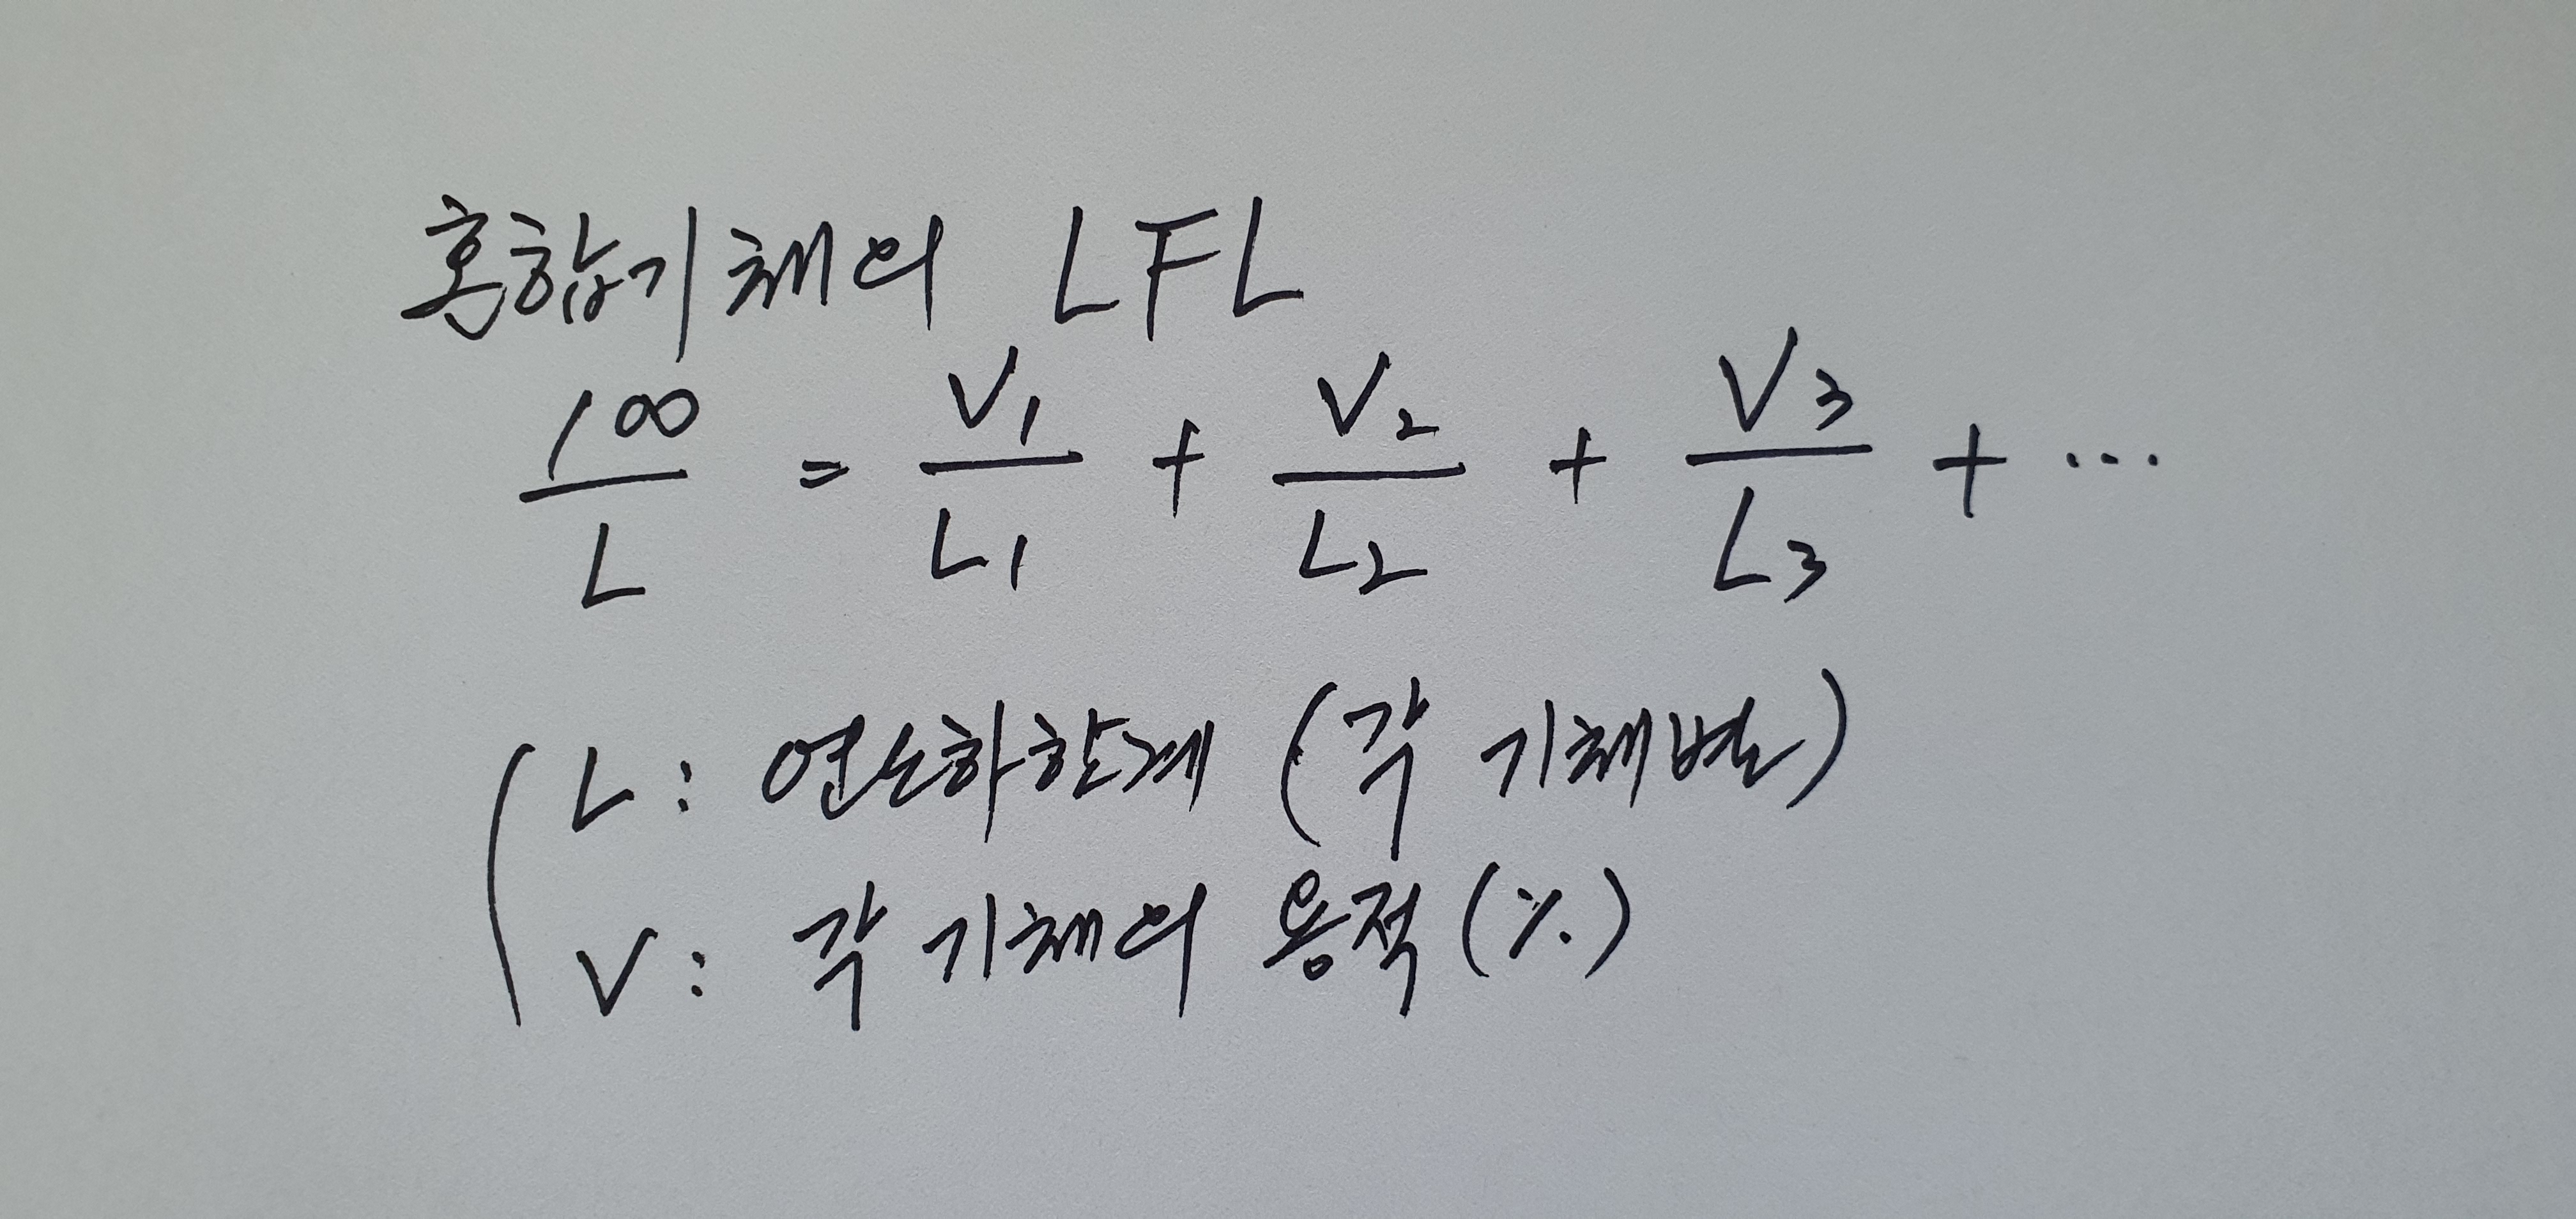 혼합기체의 LFL
100/L = V₁/L₁ + V₂/L₂ + V₃/L₃ + ...
L : 연소하한계 (각 기체별)
V : 각 기체의 용적 (%)